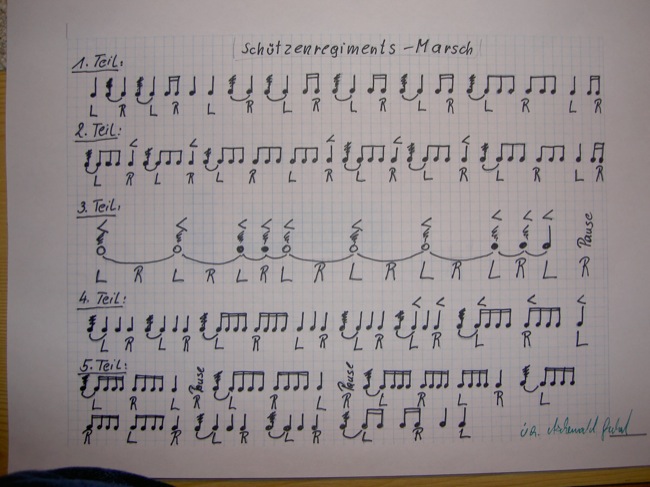 Schützenregiments - Marsch
1. Teil:
L R L R L L R L R L R L R L R L R
2. Teil:
L R L R L R L R L R L R L R
3. Teil:
Pause
L R L R L R L R L R L R L R L R
4. Teil:
L R L R L R L R L R L R L
5. Teil:
Pause Pause
L R L R L R L R L R L R L
R L R L R L R L R L
i.A.